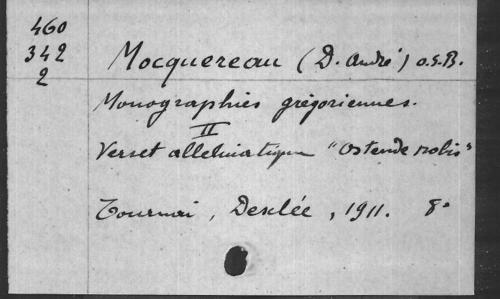 460
342
2
Mocquereau (D. André) O.S.B.
Monographies grégoriennes.
II
Verset alleluiatique "Ostende nobis"
Tournai, Desclée, 1911. 8°